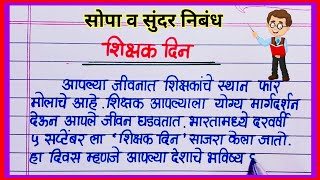 सोपा व सुंदर निबंध
शिक्षक दिन
आपल्या जीवनात शिक्षकांचे स्थान फार
मोलाचे आहे. शिक्षक आपल्याला योग्य मार्गदर्शन
देऊन आपले जीवन घडवतात. भारतामध्ये दरवर्षी
५ सप्टेंबर ला 'शिक्षक दिन' साजरा केला जातो.
हा दिवस म्हणजे आपल्या देशाचे भविष्य